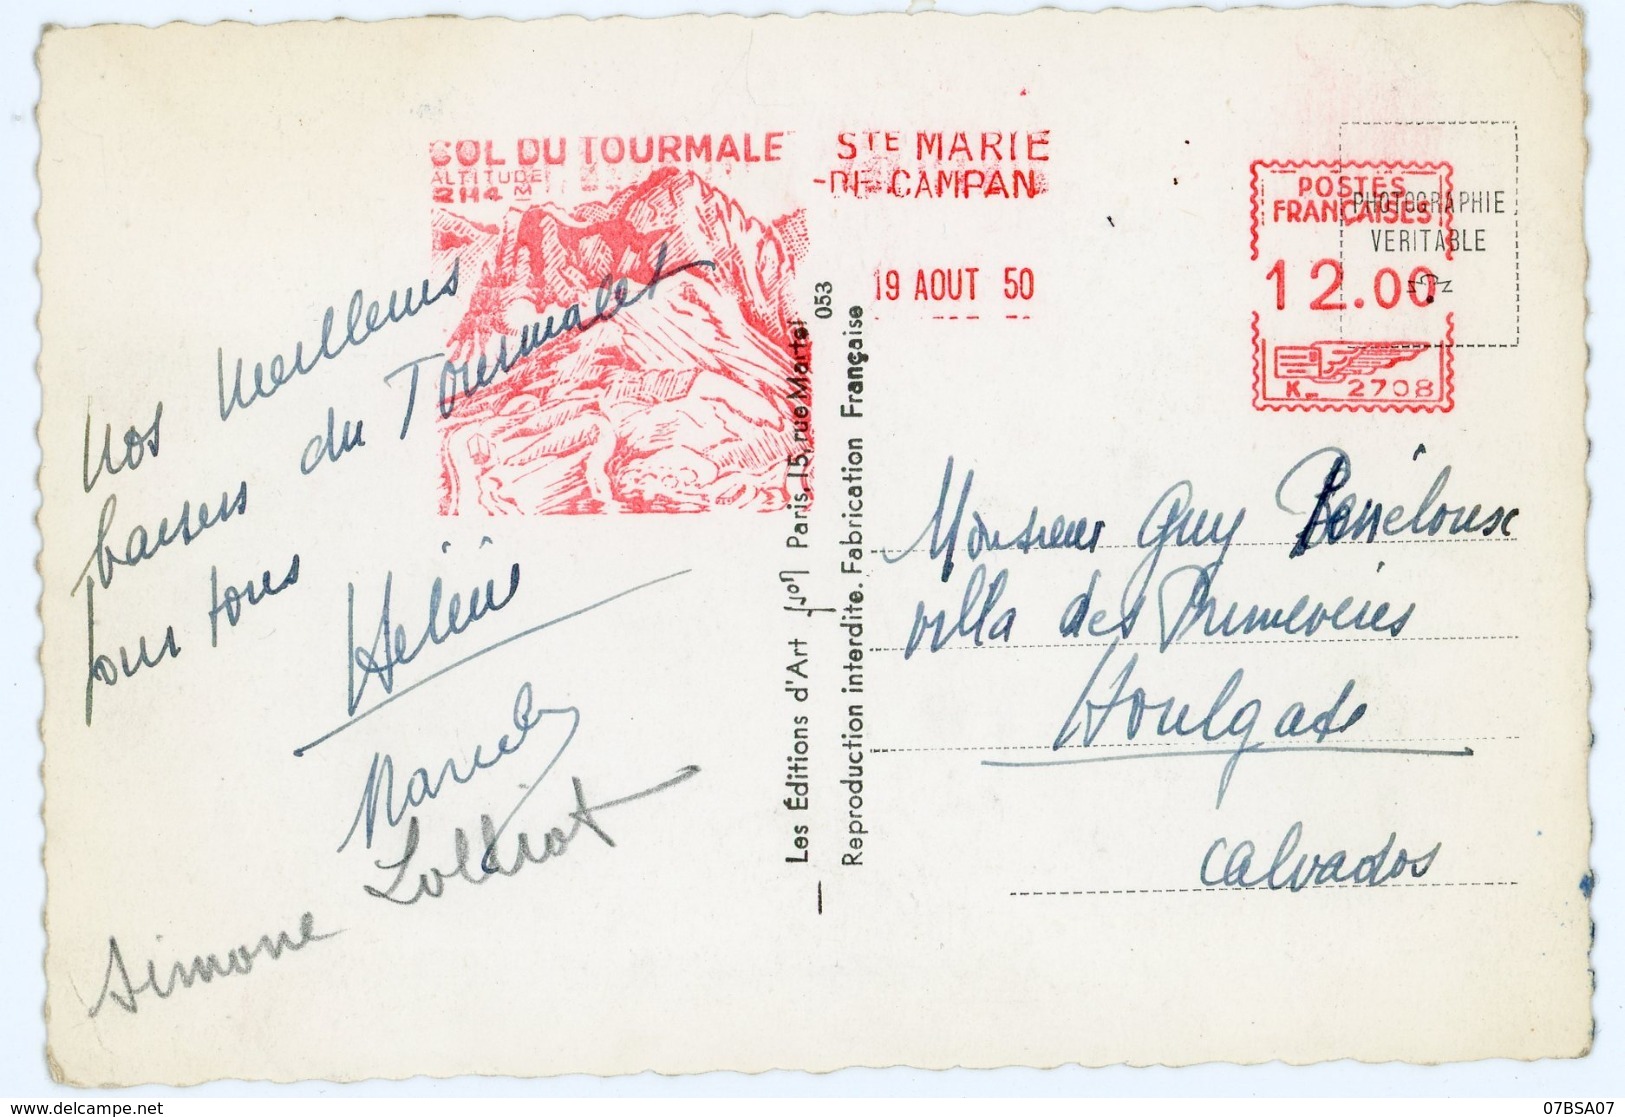 COL DU TOURMALE
ALTITUDE
2114 M
STE MARIE
-DE-CAMPAN
19 AOUT 50
POSTES
FRANÇAISES
12.00
K_ 2708
PHOTOGRAPHIE
VERITABLE
Nos meilleurs
baisers du Tourmalet
pour tous
Hélène
Simone
Les Éditions d'Art Yvon Paris, 15, rue Martel
053
Reproduction interdite. Fabrication Française
Monsieur Guy
villa des Primevères
Houlgate
Calvados
07BSA07
delcampe.net